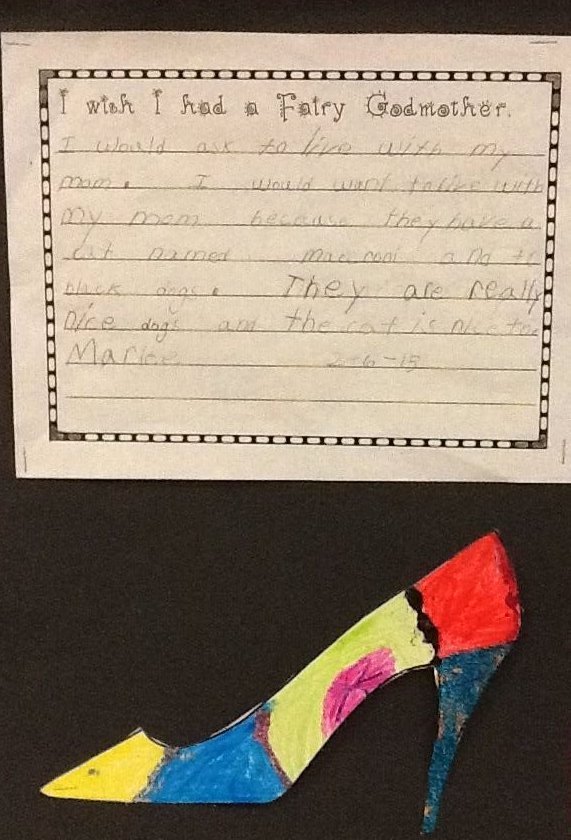 I wish I had a Fairy Godmother.
I would ask to live with my
mom. I would want to live with
my mom because they have a
cat named and to
black dogs. They are really
nice dogs and the cat is nice too
2-6-15